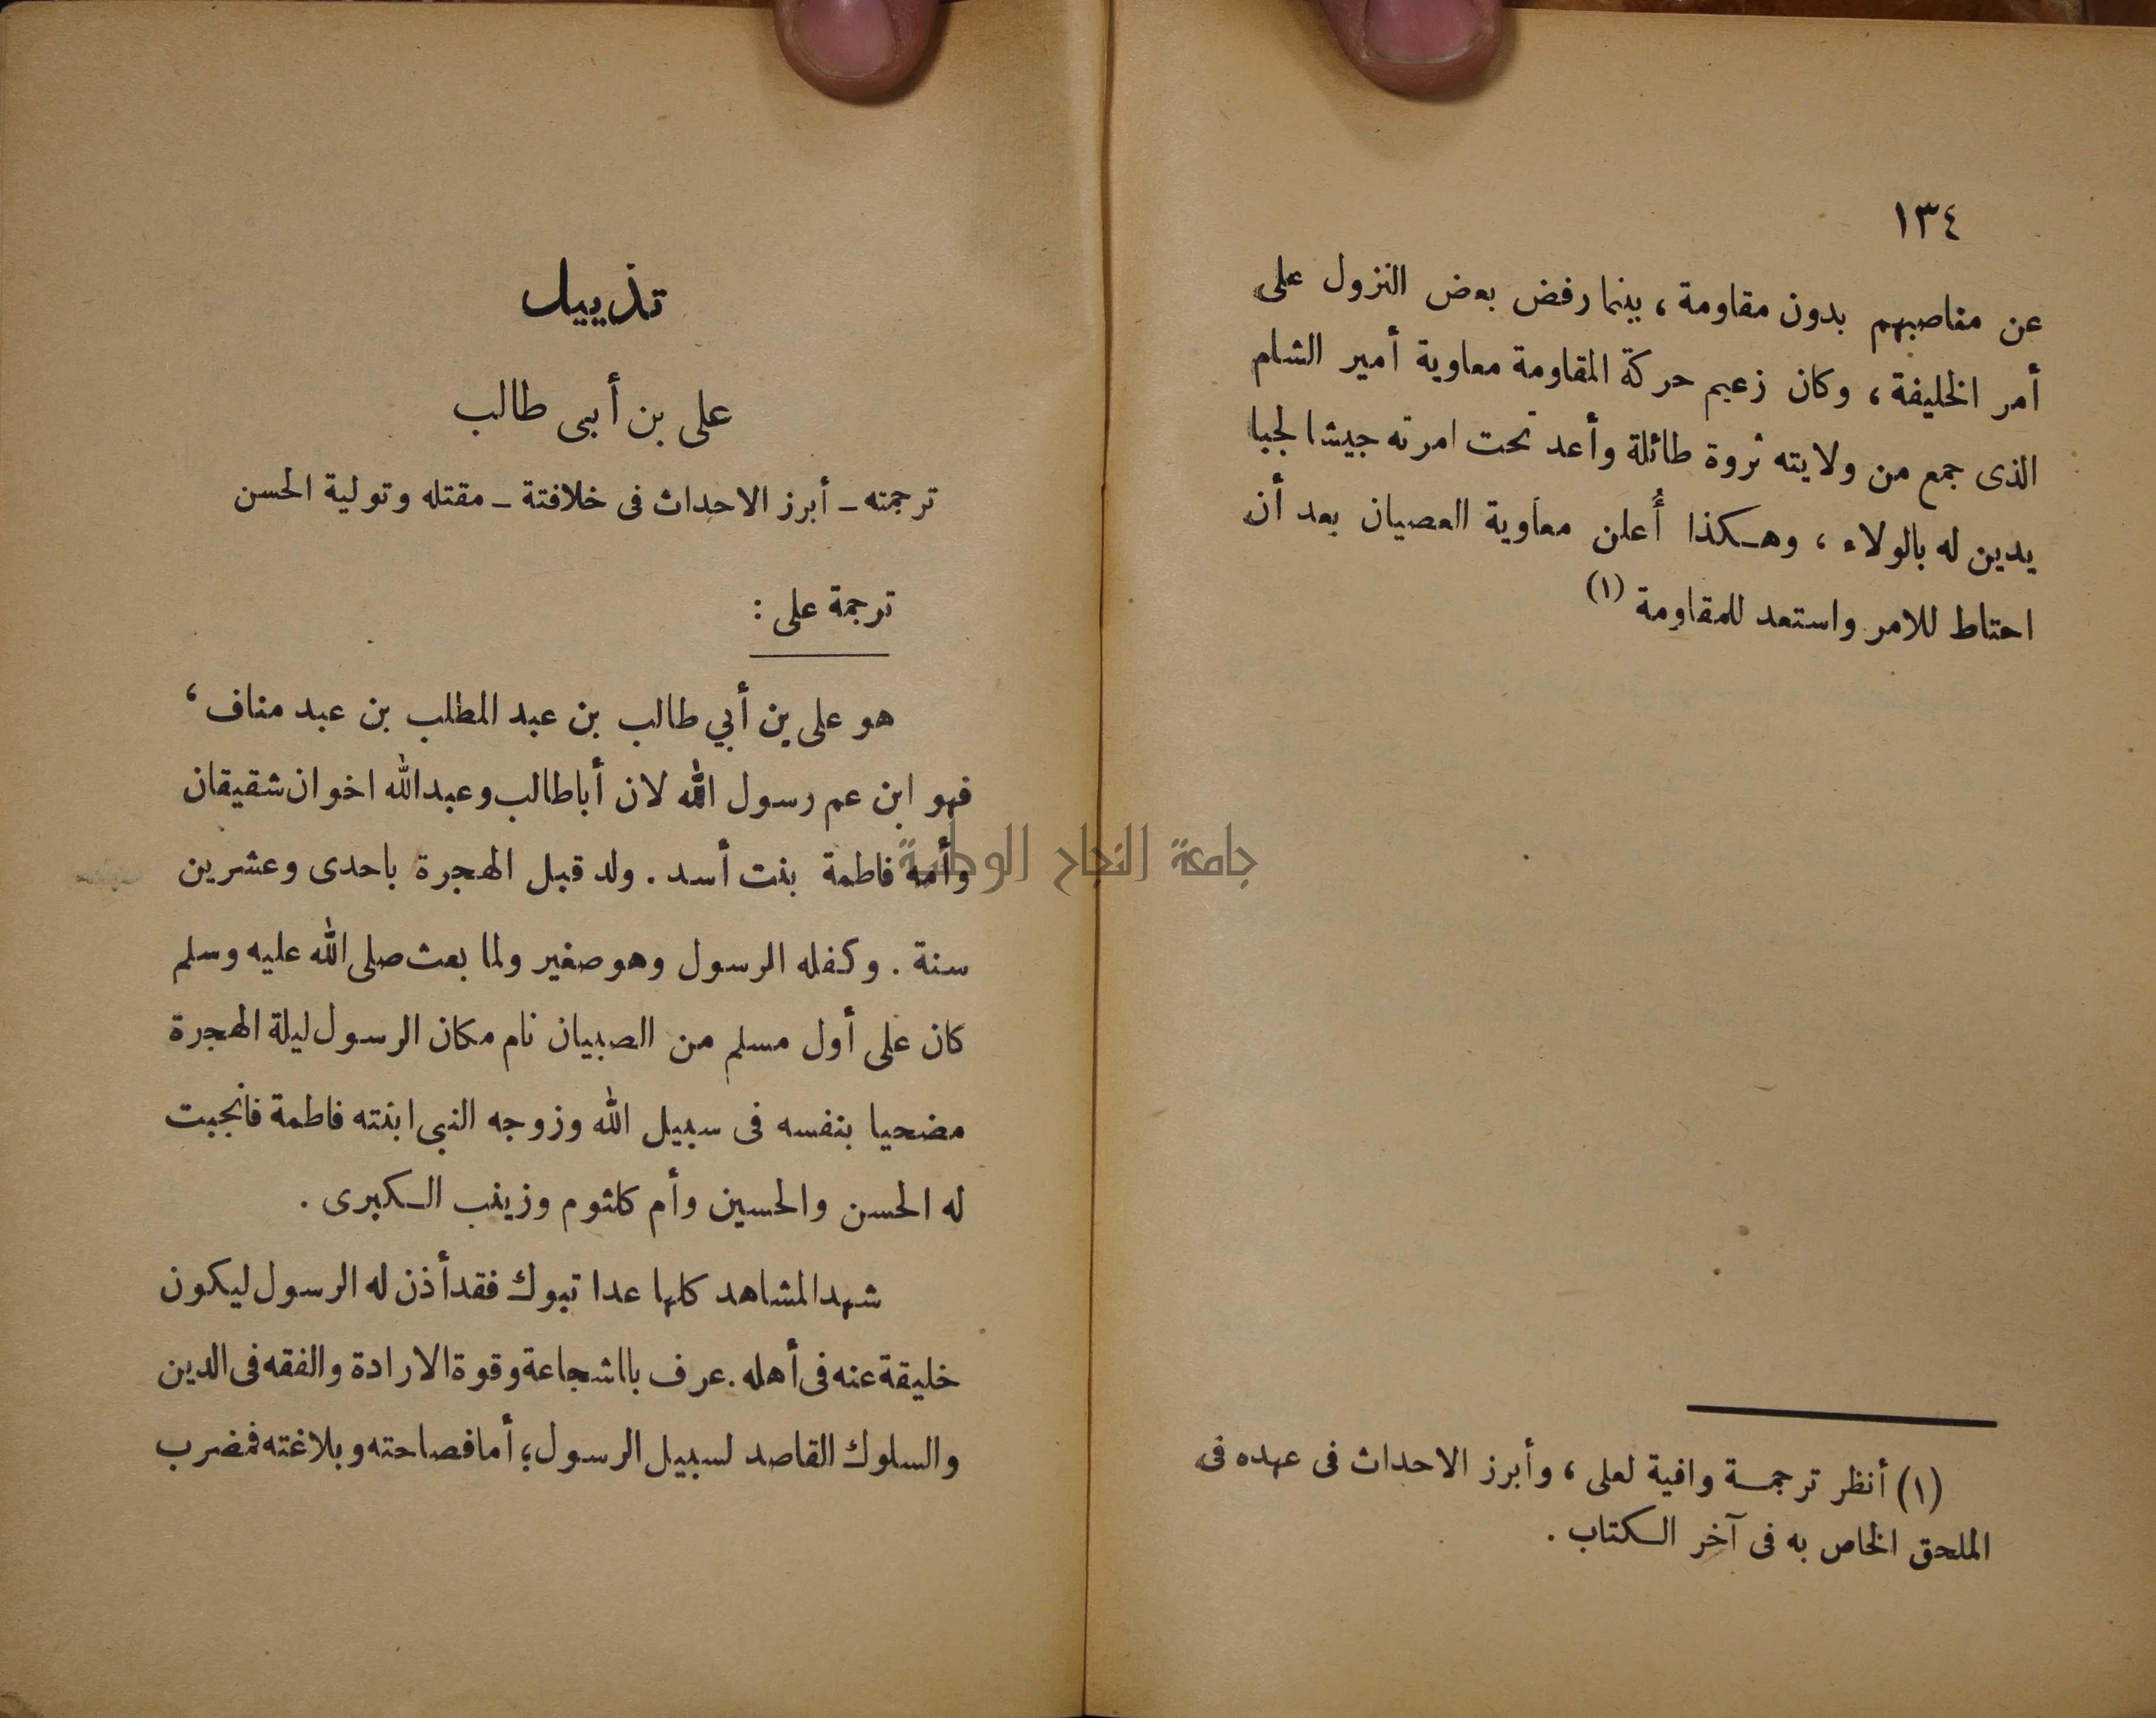 ١٣٤
عن مناصبهم بدون مقاومة، بينما رفض بعض النزول على
أمر الخليفة، وكان زعيم حركة المقاومة معاوية أمير الشام
الذى جمع من ولايته ثروة طائلة وأعد تحت امرته جيشا لجبا
يدين له بالولاء، وهكذا أُعلن معاوية العصيان بعد أن
احتاط للامر واستعد للمقاومة (١)
(١) أنظر ترجمة وافية لعلى، وأبرز الاحداث فى عهده فى
الملحق الخاص به فى آخر الكتاب.
تذييل
على بن أبى طالب
ترجمته - أبرز الاحداث فى خلافتة - مقتله وتولية الحسن
ترجمة على :
هو على بن أبي طالب بن عبد المطلب بن عبد مناف،
فهو ابن عم رسول الله لان أباطالب وعبدالله اخوان شقيقان
وأمه فاطمة بنت أسد. ولد قبل الهجرة باحدى وعشرين
سنة. وكفله الرسول وهو صغير ولما بعث صلى الله عليه وسلم
كان على أول مسلم من الصبيان نام مكان الرسول ليلة الهجرة
مضحيا بنفسه فى سبيل الله وزوجه النبى ابنته فاطمة فانجبت
له الحسن والحسين وأم كلثوم وزينب الكبرى.
شهد المشاهد كلها عدا تبوك فقد أذن له الرسول ليكون
خليقة عنه فى أهله. عرف بااشجاعة وقوة الارادة والفقه فى الدين
والسلوك القاصد لسبيل الرسول؛ أما فصاحته وبلاغته فمضرب
جامعة النجاح الوطنية